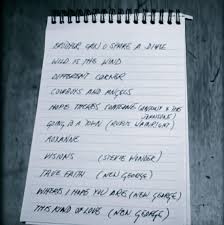 BROTHER CAN U SPARE A DIME
WILD IS THE WIND
DIFFERENT CORNER
COWBOYS AND ANGELS
HOPE THERES SOMEONE (ANTONY & THE JOHNSONS)
GOING TO A TOWN (RUFUS WAINRIGHT)
ROXANNE
VISIONS (STEVIE WONDER)
TRUE FAITH (NEW GEORGE)
WHERE I HOPE YOU ARE (NEW GEORGE)
THIS KIND OF LOVE (NEW GEORGE)